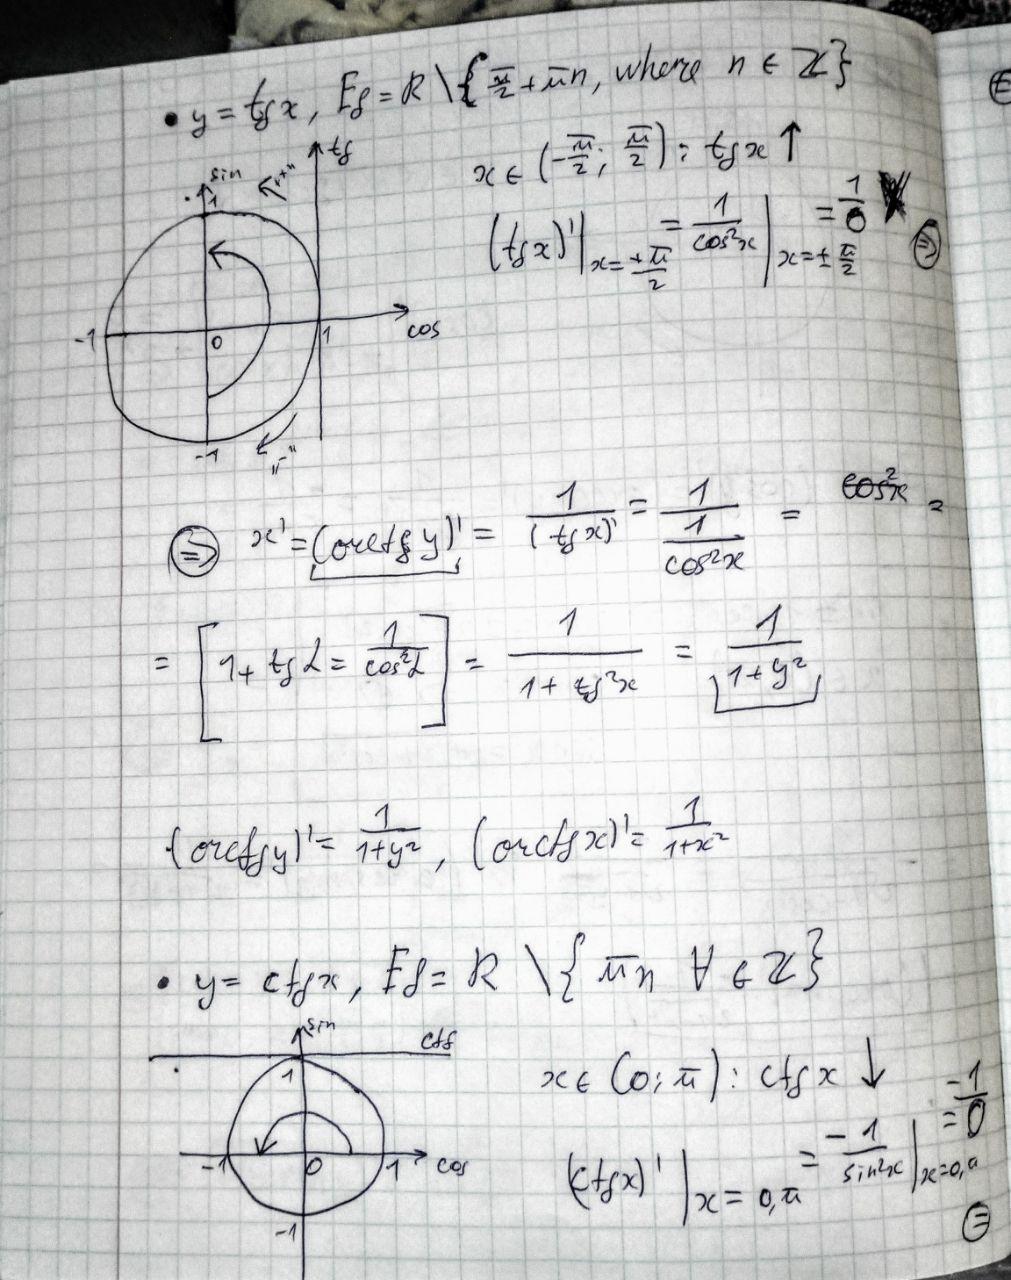 • y = tg x, Ef = R \ { π/2 + πn, where n ∈ Z }
tg
sin
"+"
1
-1
0
1
cos
-1
"-"
x ∈ (-π/2; π/2) : tg x ↑
(tg x)' |x=±π/2 = 1/cos²x |x=±π/2 = 1/0 ⇒
⇒ x' = (arctg y)' = 1/(tg x)' = 1/(1/cos²x) = cos²x =
= [ 1 + tg α = 1/cos²α ] = 1/(1 + tg²x) = 1/(1 + y²)
(arctg y)' = 1/(1+y²), (arctg x)' = 1/(1+x²)
• y = ctg x, Ef = R \ { πn ∀ ∈ Z }
sin
ctg
1
-1
0
1
cos
-1
x ∈ (0; π) : ctg x ↓
(ctg x)' |x = 0, π = -1/sin²x |x=0, π = -1/0
=